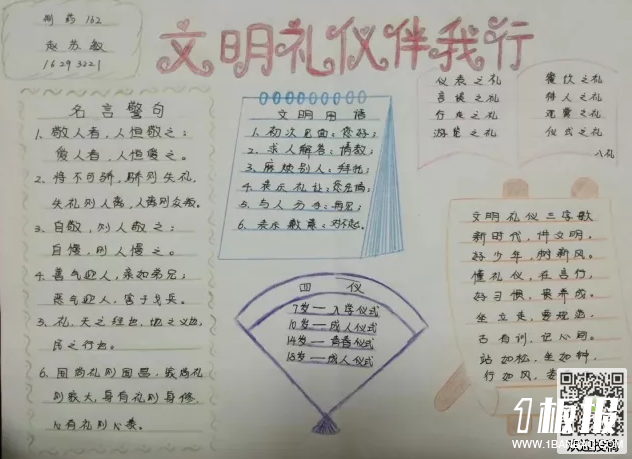 制药162
赵苏敏
16293221
文明礼仪伴我行
名言警句
1. 敬人者,人恒敬之;
爱人者,人恒爱之。
2. 将不可骄,骄则失礼,
失礼则人离,人离则众叛。
3. 自敬,则人敬之;
自慢,则人慢之。
4. 善气迎人,亲如弟兄;
恶气迎人,害于戈兵。
5. 礼,天之经也,地之义也,
民之行也。
6. 国尚礼则国昌,家尚礼
则家大,身有礼则身修,
心有礼则心泰。
文明用语
1. 初次见面:您好;
2. 求人解答:请教;
3. 麻烦别人:拜托;
4. 表示礼让:您先请;
5. 与人分手:再见;
6. 表示歉意:对不起。
四 仪
7岁—入学仪式
10岁—成人仪式
14岁—青春仪式
18岁—成人仪式
仪表之礼
言谈之礼
行走之礼
游览之礼
餐饮之礼
待人之礼
观赏之礼
仪式之礼
八礼
文明礼仪三字歌
新时代,伴文明,
好少年,树新风。
懂礼仪,在言行,
好习惯,要养成。
坐立走,要规范,
古有训,记心间。
站如松,坐如钟,
行如风,
1板报
WWW.1BANBAO.COM
欢迎投稿